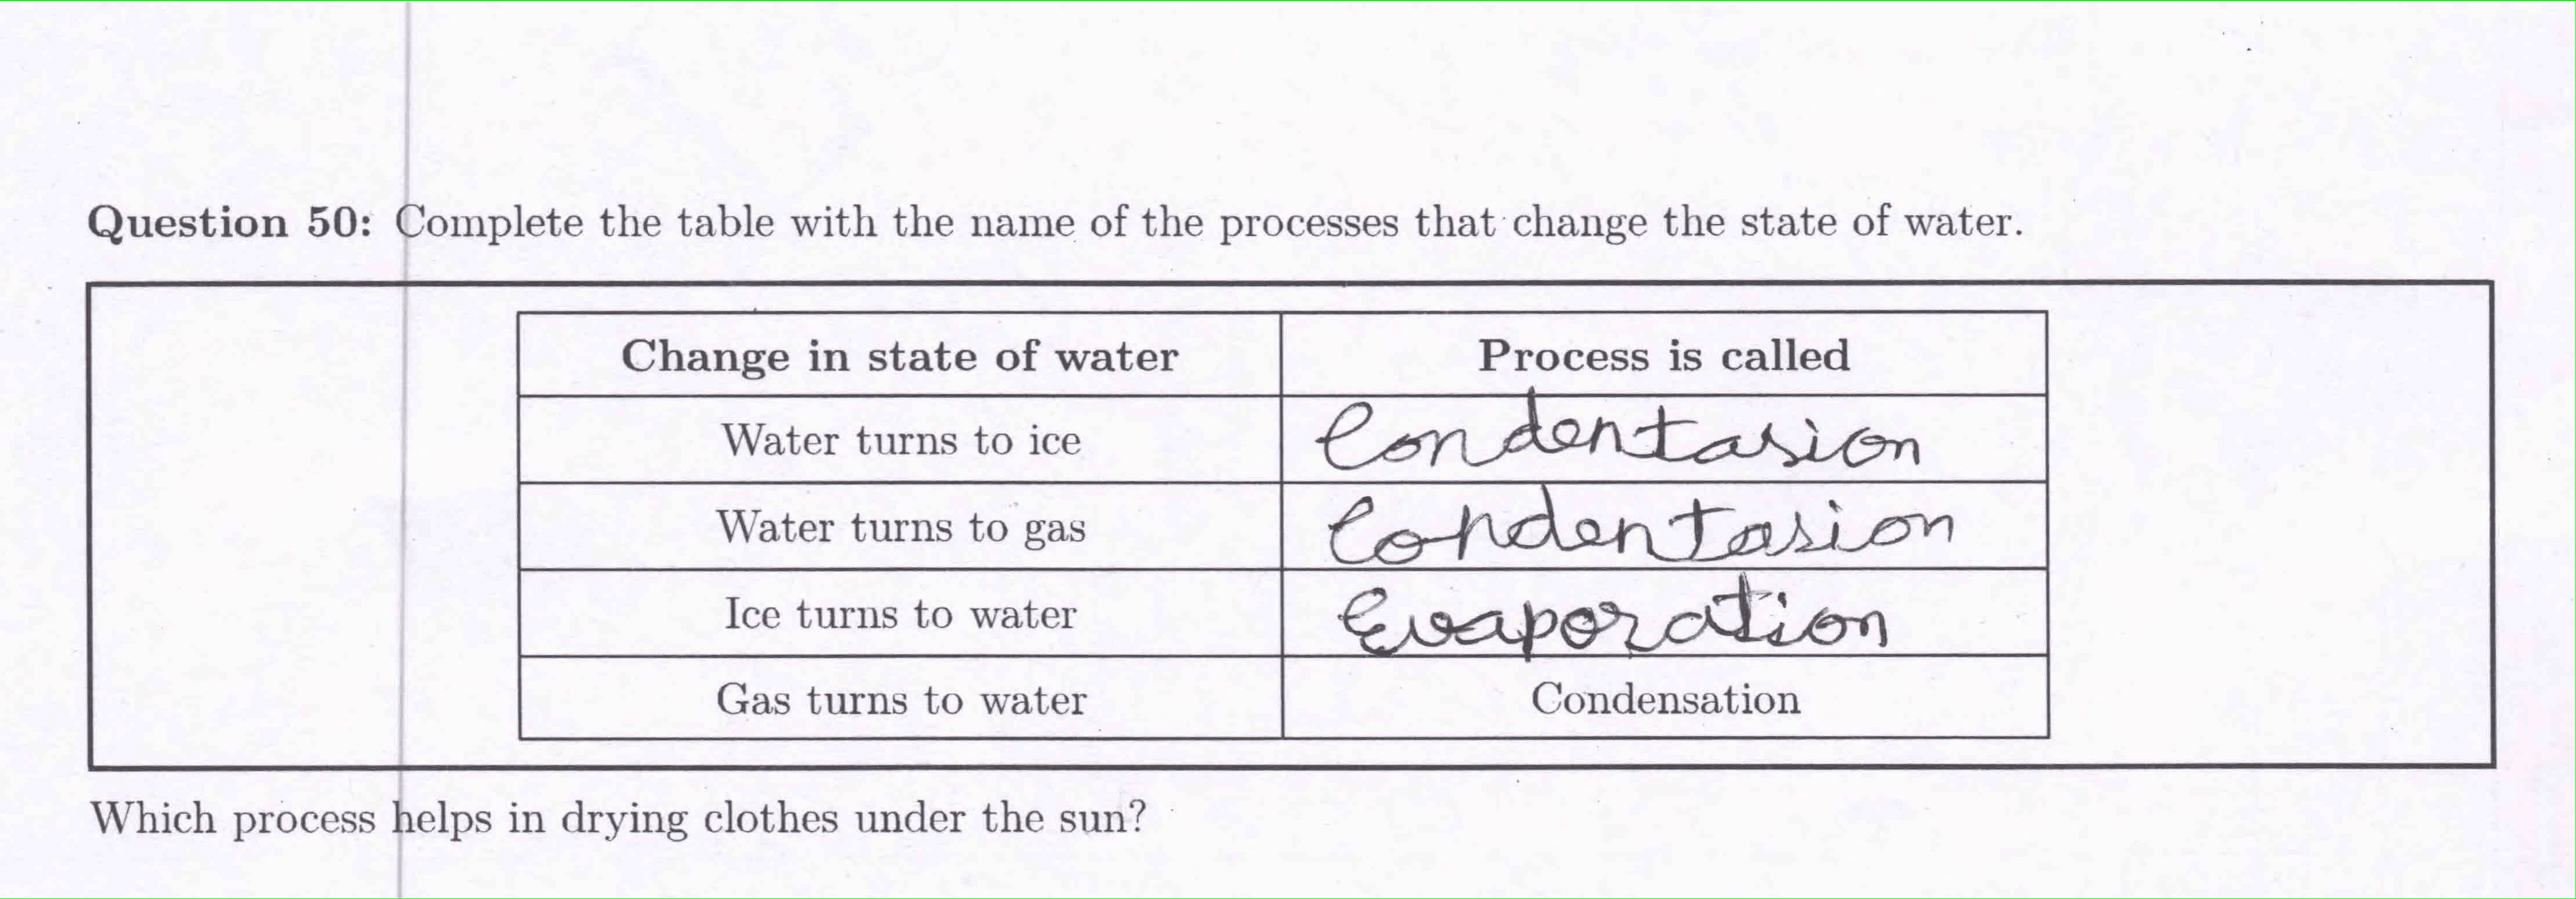 Question 50: Complete the table with the name of the processes that change the state of water.
Change in state of water Process is called
Water turns to ice Condentasion
Water turns to gas Condentasion
Ice turns to water Evaporation
Gas turns to water Condensation
Which process helps in drying clothes under the sun?